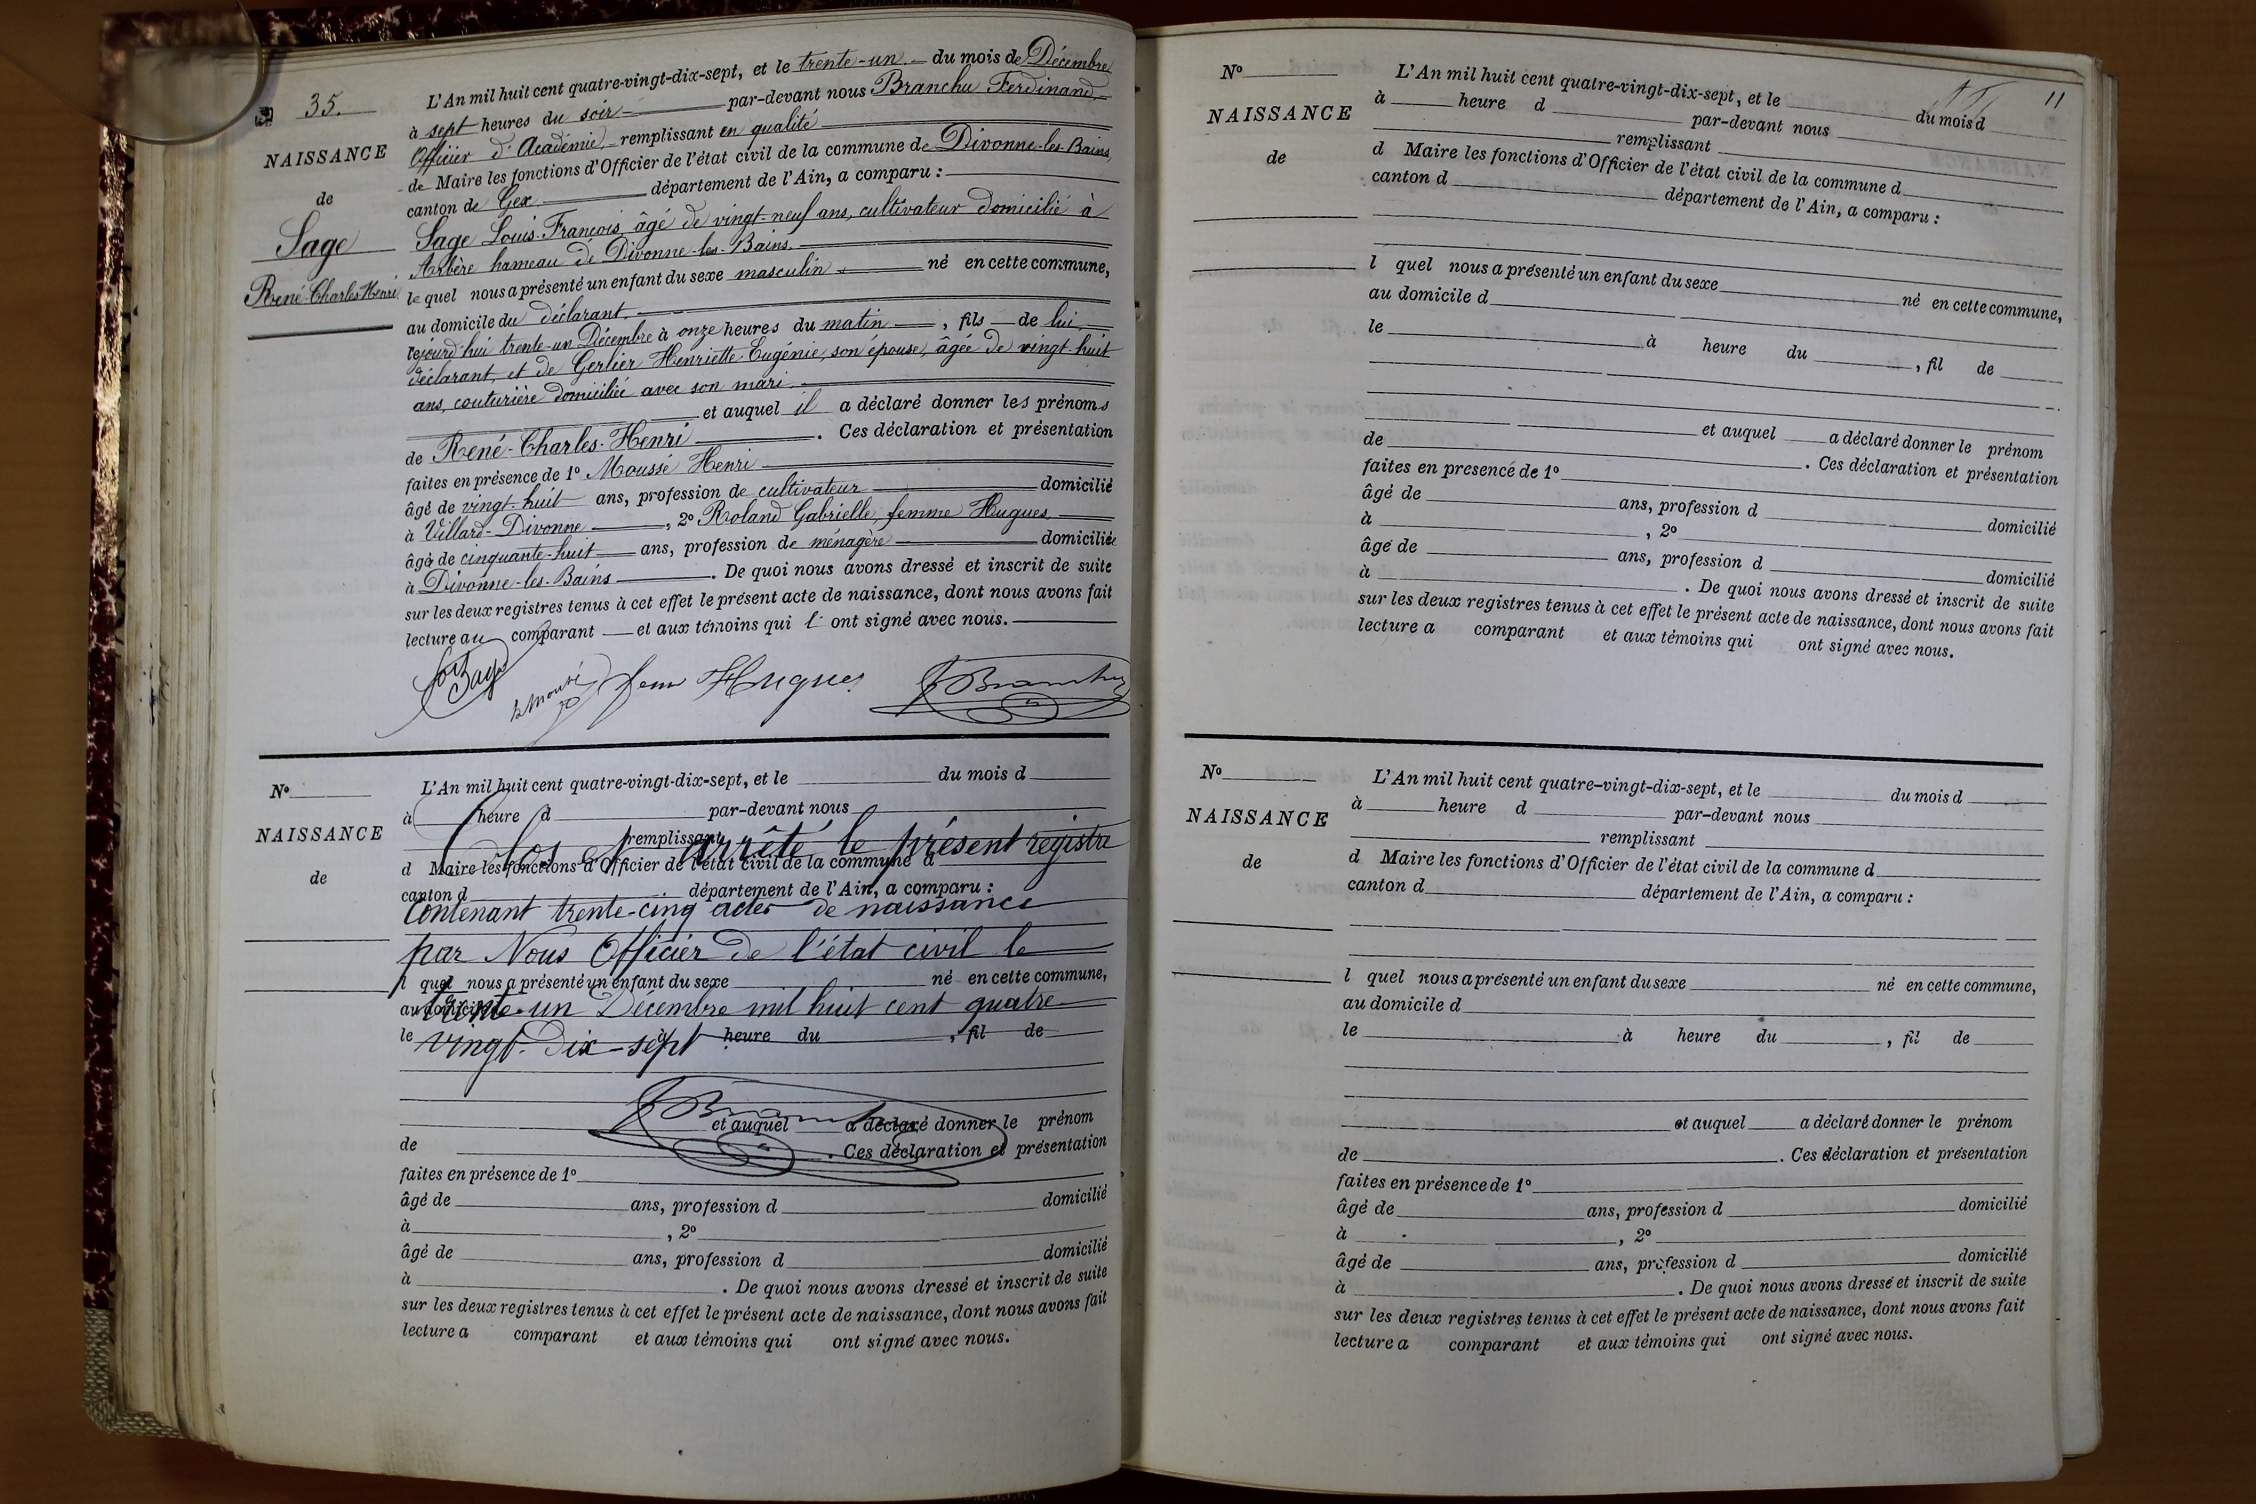 35.
NAISSANCE
de
Sage
René-Charles-Henri
L'An mil huit cent quatre-vingt-dix-sept, et le trente-un du mois de Décembre
à sept heures du soir par-devant nous Branchu Ferdinand
Officier d'Académie, remplissant en qualité
de Maire les fonctions d'Officier de l'état civil de la commune de Divonne-les-Bains,
canton de Gex département de l'Ain, a comparu :
Sage Louis-François, âgé de vingt-neuf ans, cultivateur domicilié à
Arbère hameau de Divonne-les-Bains.
le quel nous a présenté un enfant du sexe masculin né en cette commune,
au domicile du déclarant,
le jourd'hui trente-un Décembre à onze heures du matin, fils de lui,
déclarant, et de Gerlier Henriette-Eugénie, son épouse, âgée de vingt-huit
ans, couturière domiciliée avec son mari.
et auquel il a déclaré donner les prénoms
de René-Charles-Henri. Ces déclaration et présentation
faites en présence de 1° Moussé Henri
âgé de vingt-huit ans, profession de cultivateur domicilié
à Villard-Divonne, 2° Roland Gabrielle, femme Hugues,
âgé de cinquante-huit ans, profession de ménagère domiciliée
à Divonne-les-Bains. De quoi nous avons dressé et inscrit de suite
sur les deux registres tenus à cet effet le présent acte de naissance, dont nous avons fait
lecture au comparant et aux témoins qui l' ont signé avec nous.
fem Hugues Branchu
N°
NAISSANCE
de
L'An mil huit cent quatre-vingt-dix-sept, et le du mois d
à heure d par-devant nous
remplissant
Clos et arrêté le présent registre
d Maire les fonctions d'Officier de l'état civil de la commune d
canton d département de l'Ain, a comparu :
contenant trente-cinq actes de naissance
par Nous Officier de l'état civil le
l quel nous a présenté un enfant du sexe né en cette commune,
au domicile
trente-un Décembre mil huit cent quatre-
le à heure du , fil de
vingt-dix-sept
Branchu
et auquel a déclaré donner le prénom
de . Ces déclaration et présentation
faites en présence de 1°
âgé de ans, profession d domicilié
à , 2°
âgé de ans, profession d domicilié
à . De quoi nous avons dressé et inscrit de suite
sur les deux registres tenus à cet effet le présent acte de naissance, dont nous avons fait
lecture a comparant et aux témoins qui ont signé avec nous.
11
N°
NAISSANCE
de
L'An mil huit cent quatre-vingt-dix-sept, et le du mois d
à heure d par-devant nous
remplissant
d Maire les fonctions d'Officier de l'état civil de la commune d
canton d département de l'Ain, a comparu :
l quel nous a présenté un enfant du sexe né en cette commune,
au domicile d
le à heure du , fil de
et auquel a déclaré donner le prénom
de . Ces déclaration et présentation
faites en presencé de 1°
âgé de ans, profession d domicilié
à , 2°
âgé de ans, profession d domicilié
à . De quoi nous avons dressé et inscrit de suite
sur les deux registres tenus à cet effet le présent acte de naissance, dont nous avons fait
lecture a comparant et aux témoins qui ont signé avec nous.
N°
NAISSANCE
de
L'An mil huit cent quatre-vingt-dix-sept, et le du mois d
à heure d par-devant nous
remplissant
d Maire les fonctions d'Officier de l'état civil de la commune d
canton d département de l'Ain, a comparu :
l quel nous a présenté un enfant du sexe né en cette commune,
au domicile d
le à heure du , fil de
et auquel a déclaré donner le prénom
de . Ces déclaration et présentation
faites en présence de 1°
âgé de ans, profession d domicilié
à , 2°
âgé de ans, profession d domicilié
à . De quoi nous avons dressé et inscrit de suite
sur les deux registres tenus à cet effet le présent acte de naissance, dont nous avons fait
lecture a comparant et aux témoins qui ont signé avec nous.